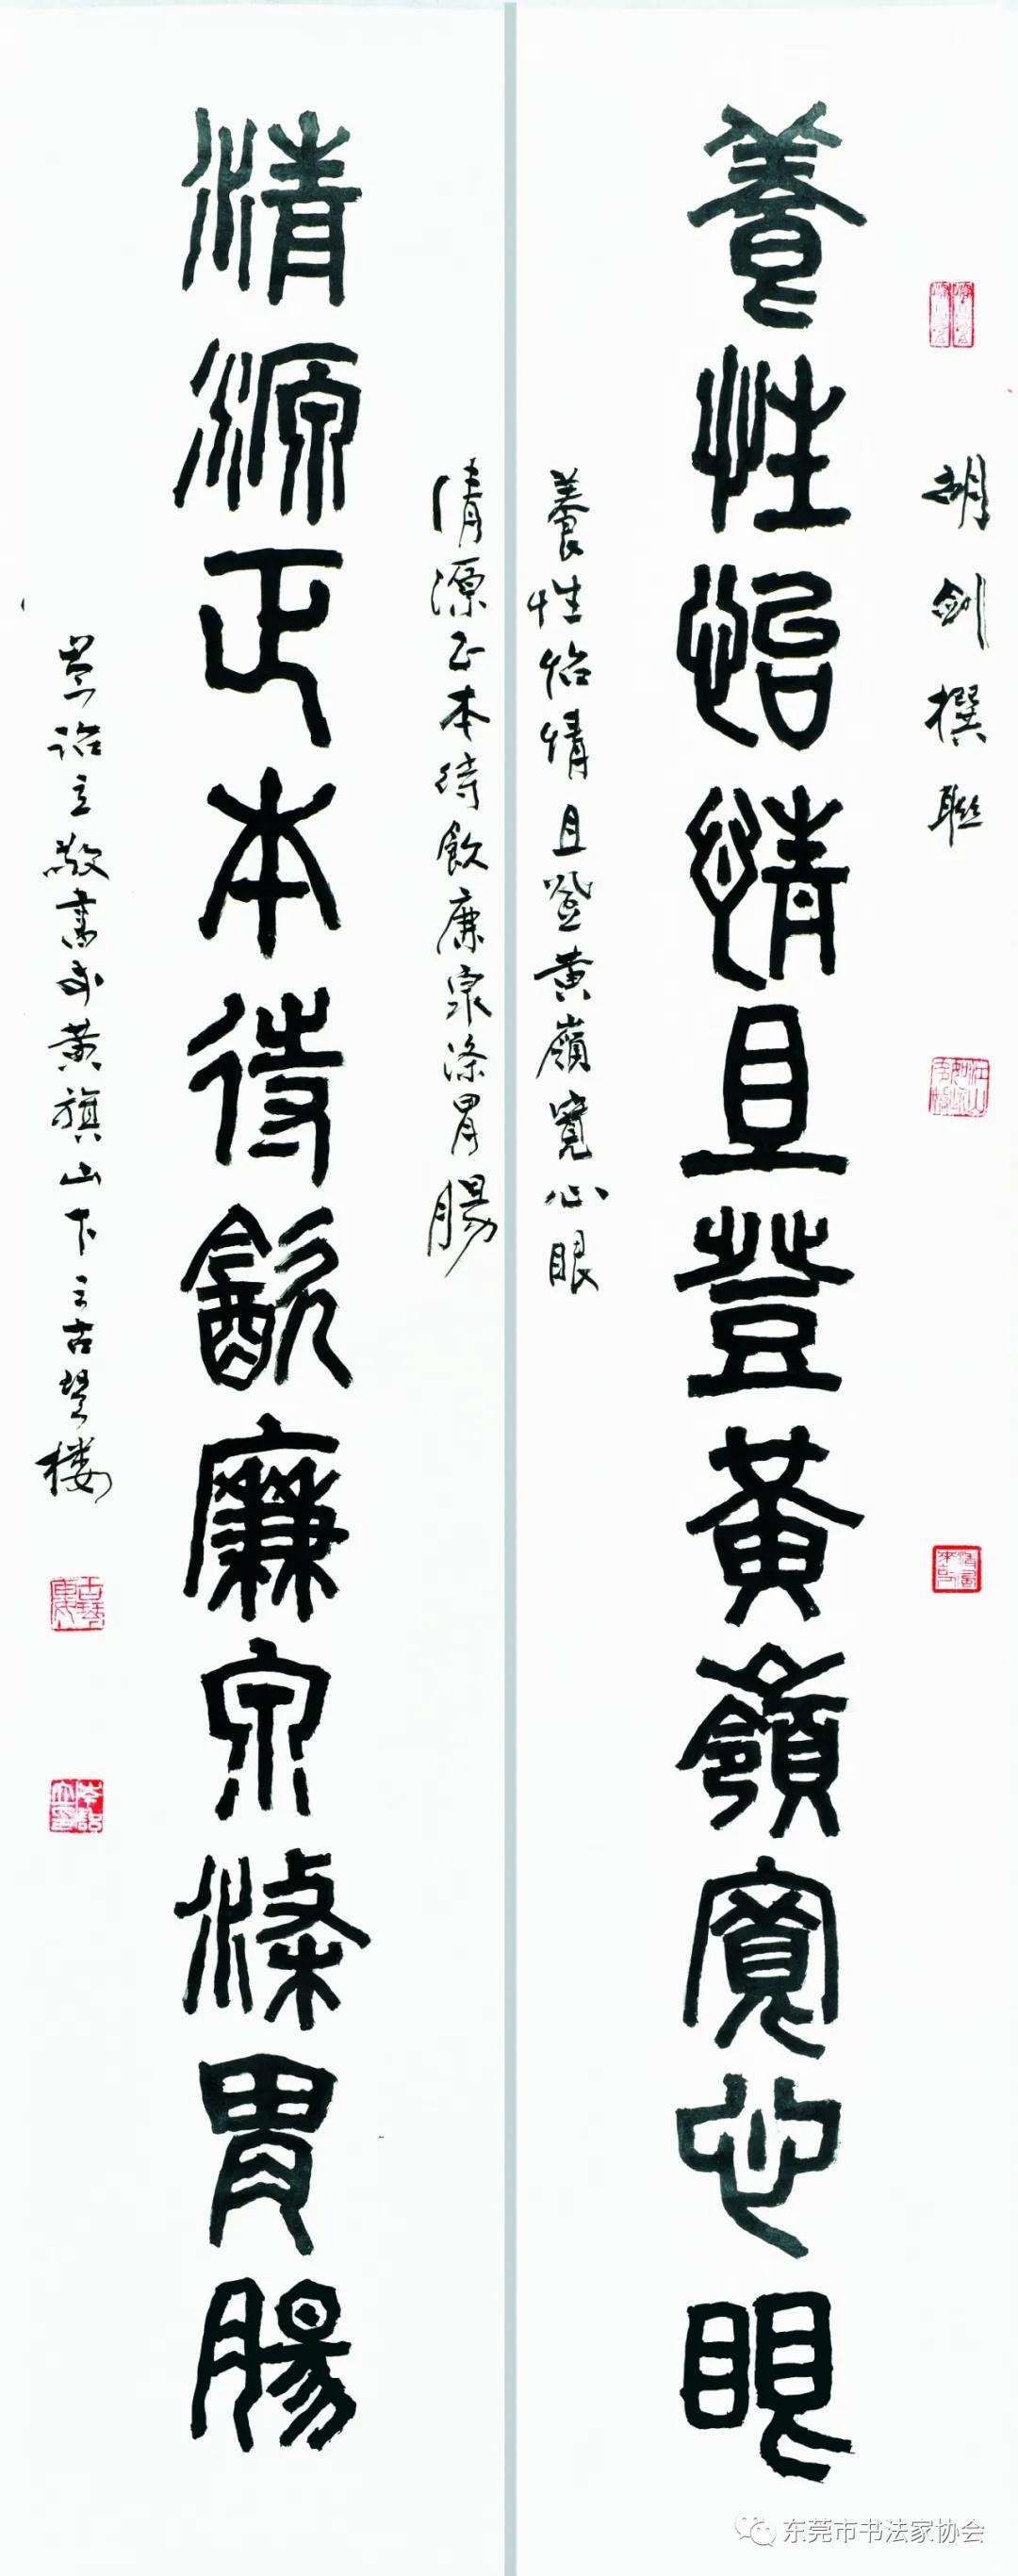 胡劍撰聯
養性怡情且登黃嶺寬心眼
養性怡情且登黃嶺寬心眼
清源正本待飲廉泉滌胃腸
清源正本待飲廉泉滌胃腸
詔立敬書於黃旗山下云古琴樓
东莞市书法家协会